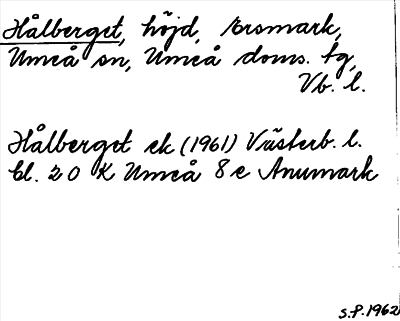 Hålberget, höjd, Ersmark,
Umeå sn, Umeå doms. tg,
Vb. l.
Hålberget ek (1961) Västerb. l.
bl. 20 K Umeå 8 e Anumark
S.P. 1962